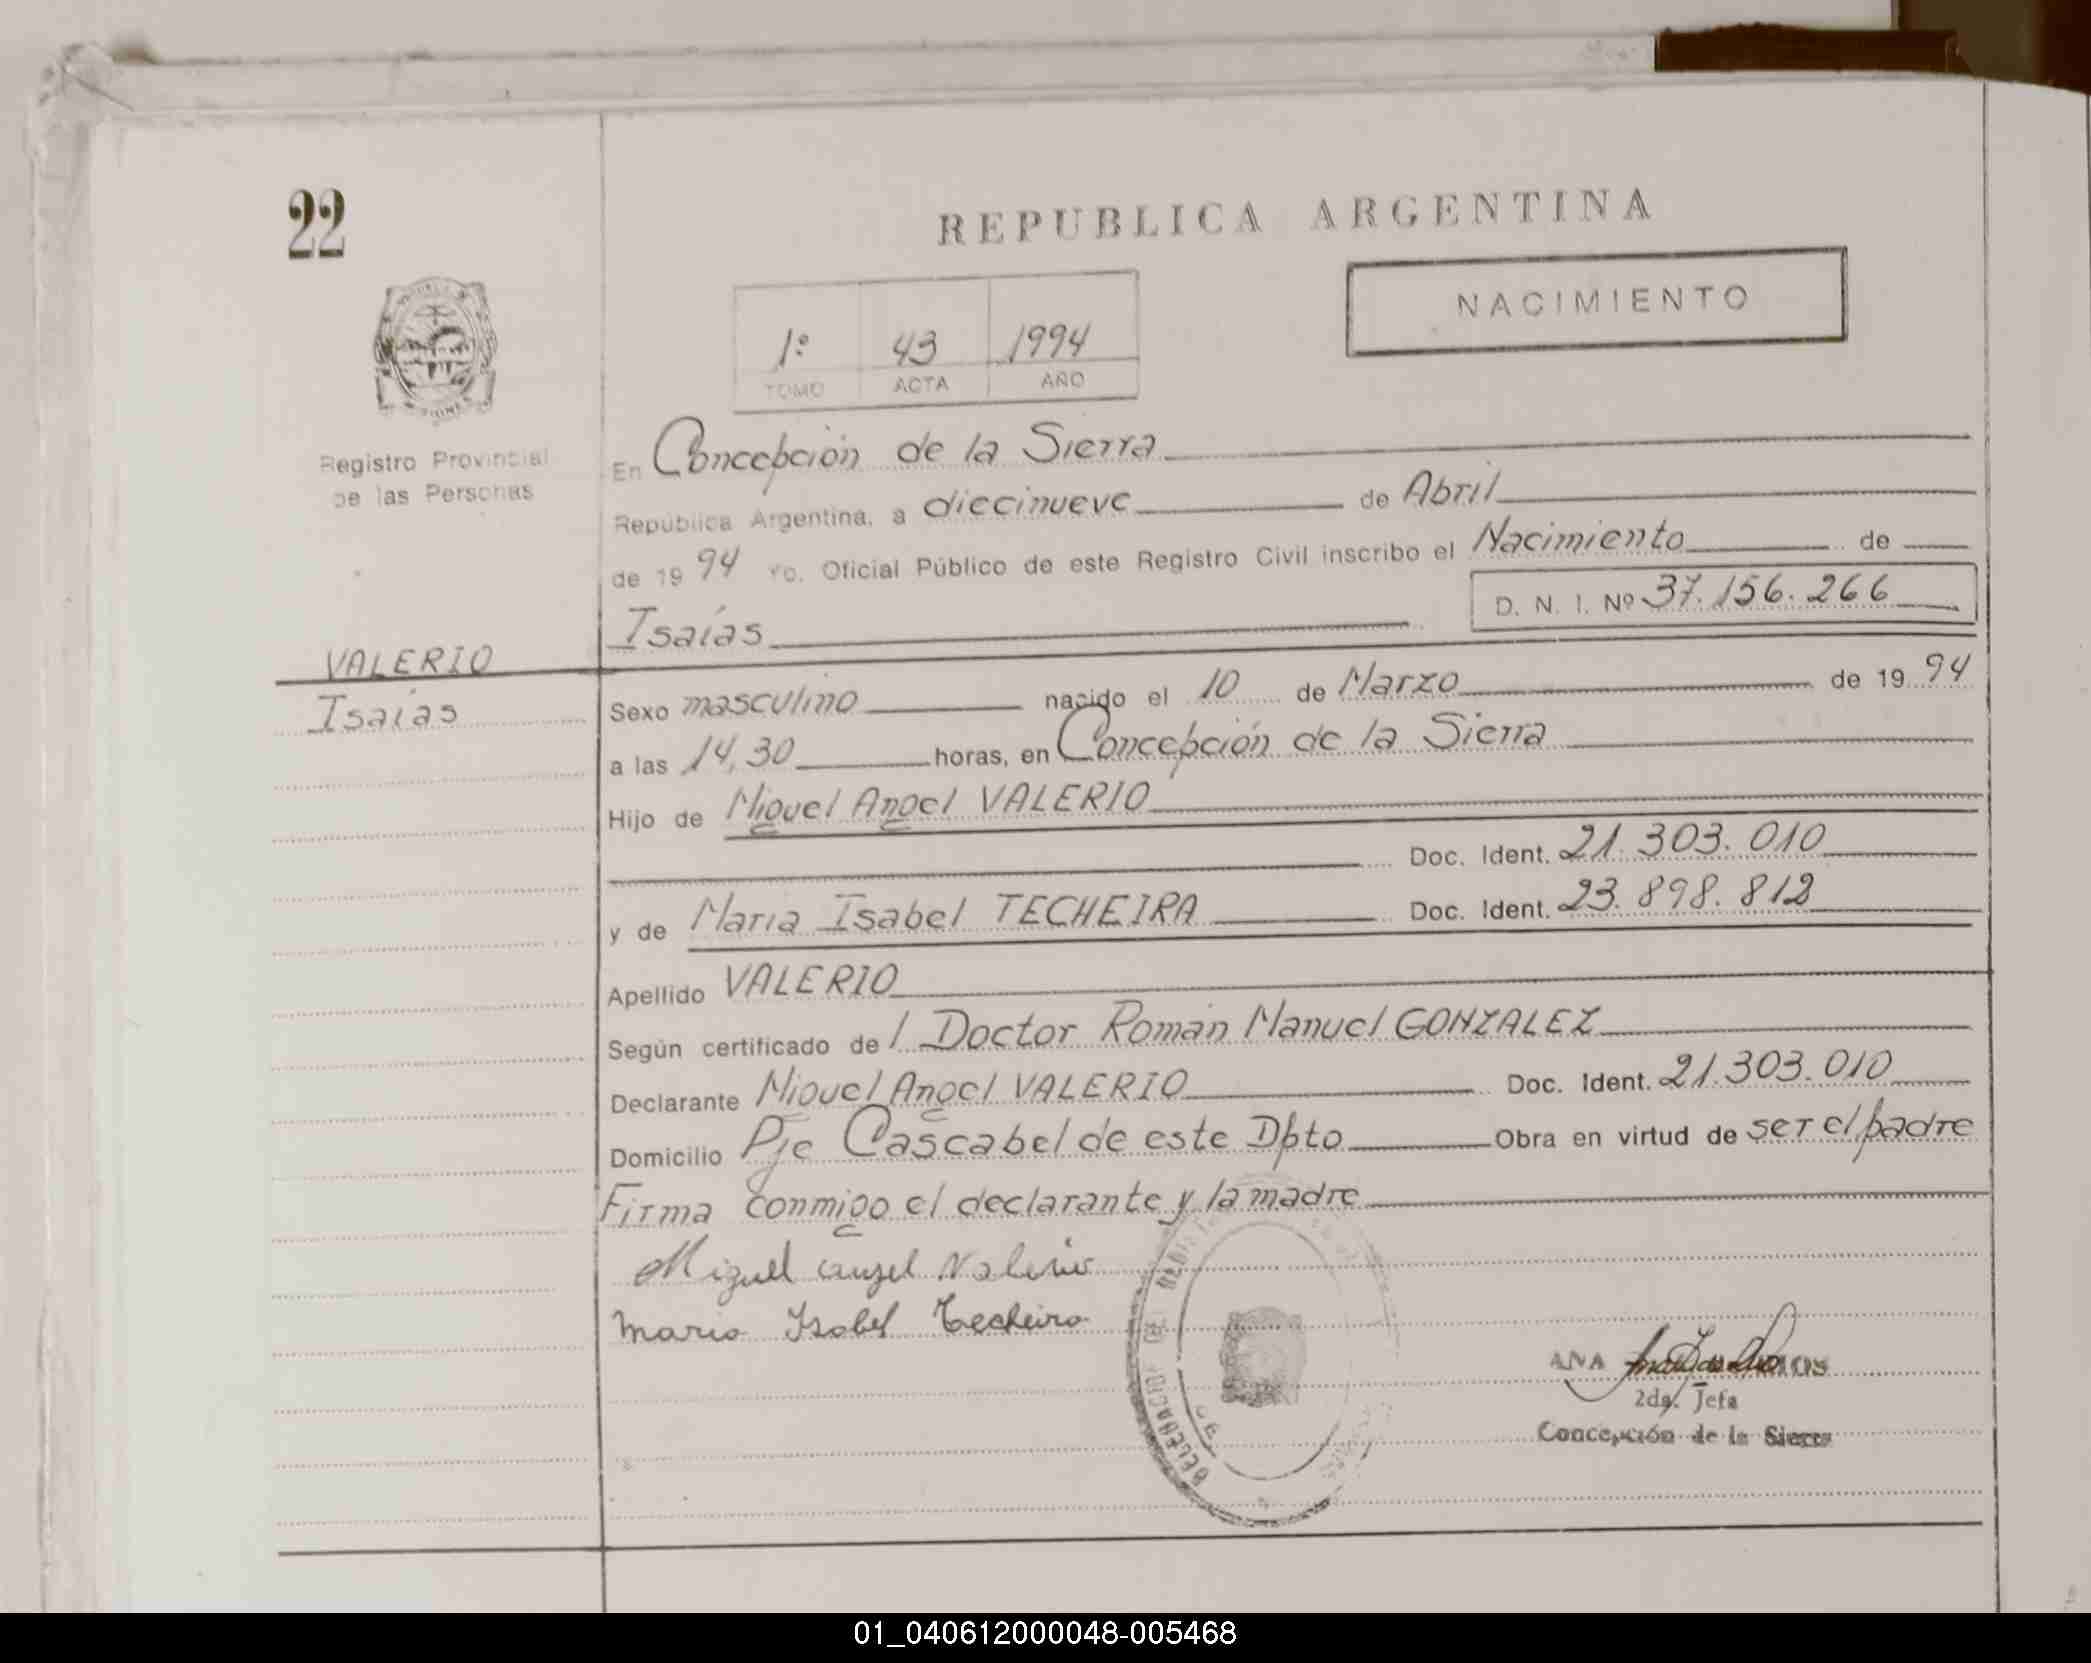 22
REPUBLICA ARGENTINA
NACIMIENTO
1º 43 1994
TOMO ACTA AÑO
Registro Provincial
de las Personas
En Concepción de la Sierra
República Argentina, a diecinueve de Abril
de 1994 Yo, Oficial Público de este Registro Civil inscribo el Nacimiento de
Isaías D. N. I. Nº 37.156.266
VALERIO
Isaías
Sexo masculino nacido el 10 de Marzo de 1994
a las 14,30 horas, en Concepción de la Sierra
Hijo de Miguel Angel VALERIO
Doc. Ident. 21.303.010
y de Maria Isabel TECHEIRA Doc. Ident. 23.898.812
Apellido VALERIO
Según certificado del Doctor Román Manuel GONZALEZ
Declarante Miguel Angel VALERIO Doc. Ident. 21.303.010
Domicilio Pje Cascabel de este Dpto Obra en virtud de ser el padre
Firma conmigo el declarante y la madre
Miguel angel Valerio
Maria Isabel Techeira
ANA
2da. Jefa
Concepción de la Sierra
01_040612000048-005468